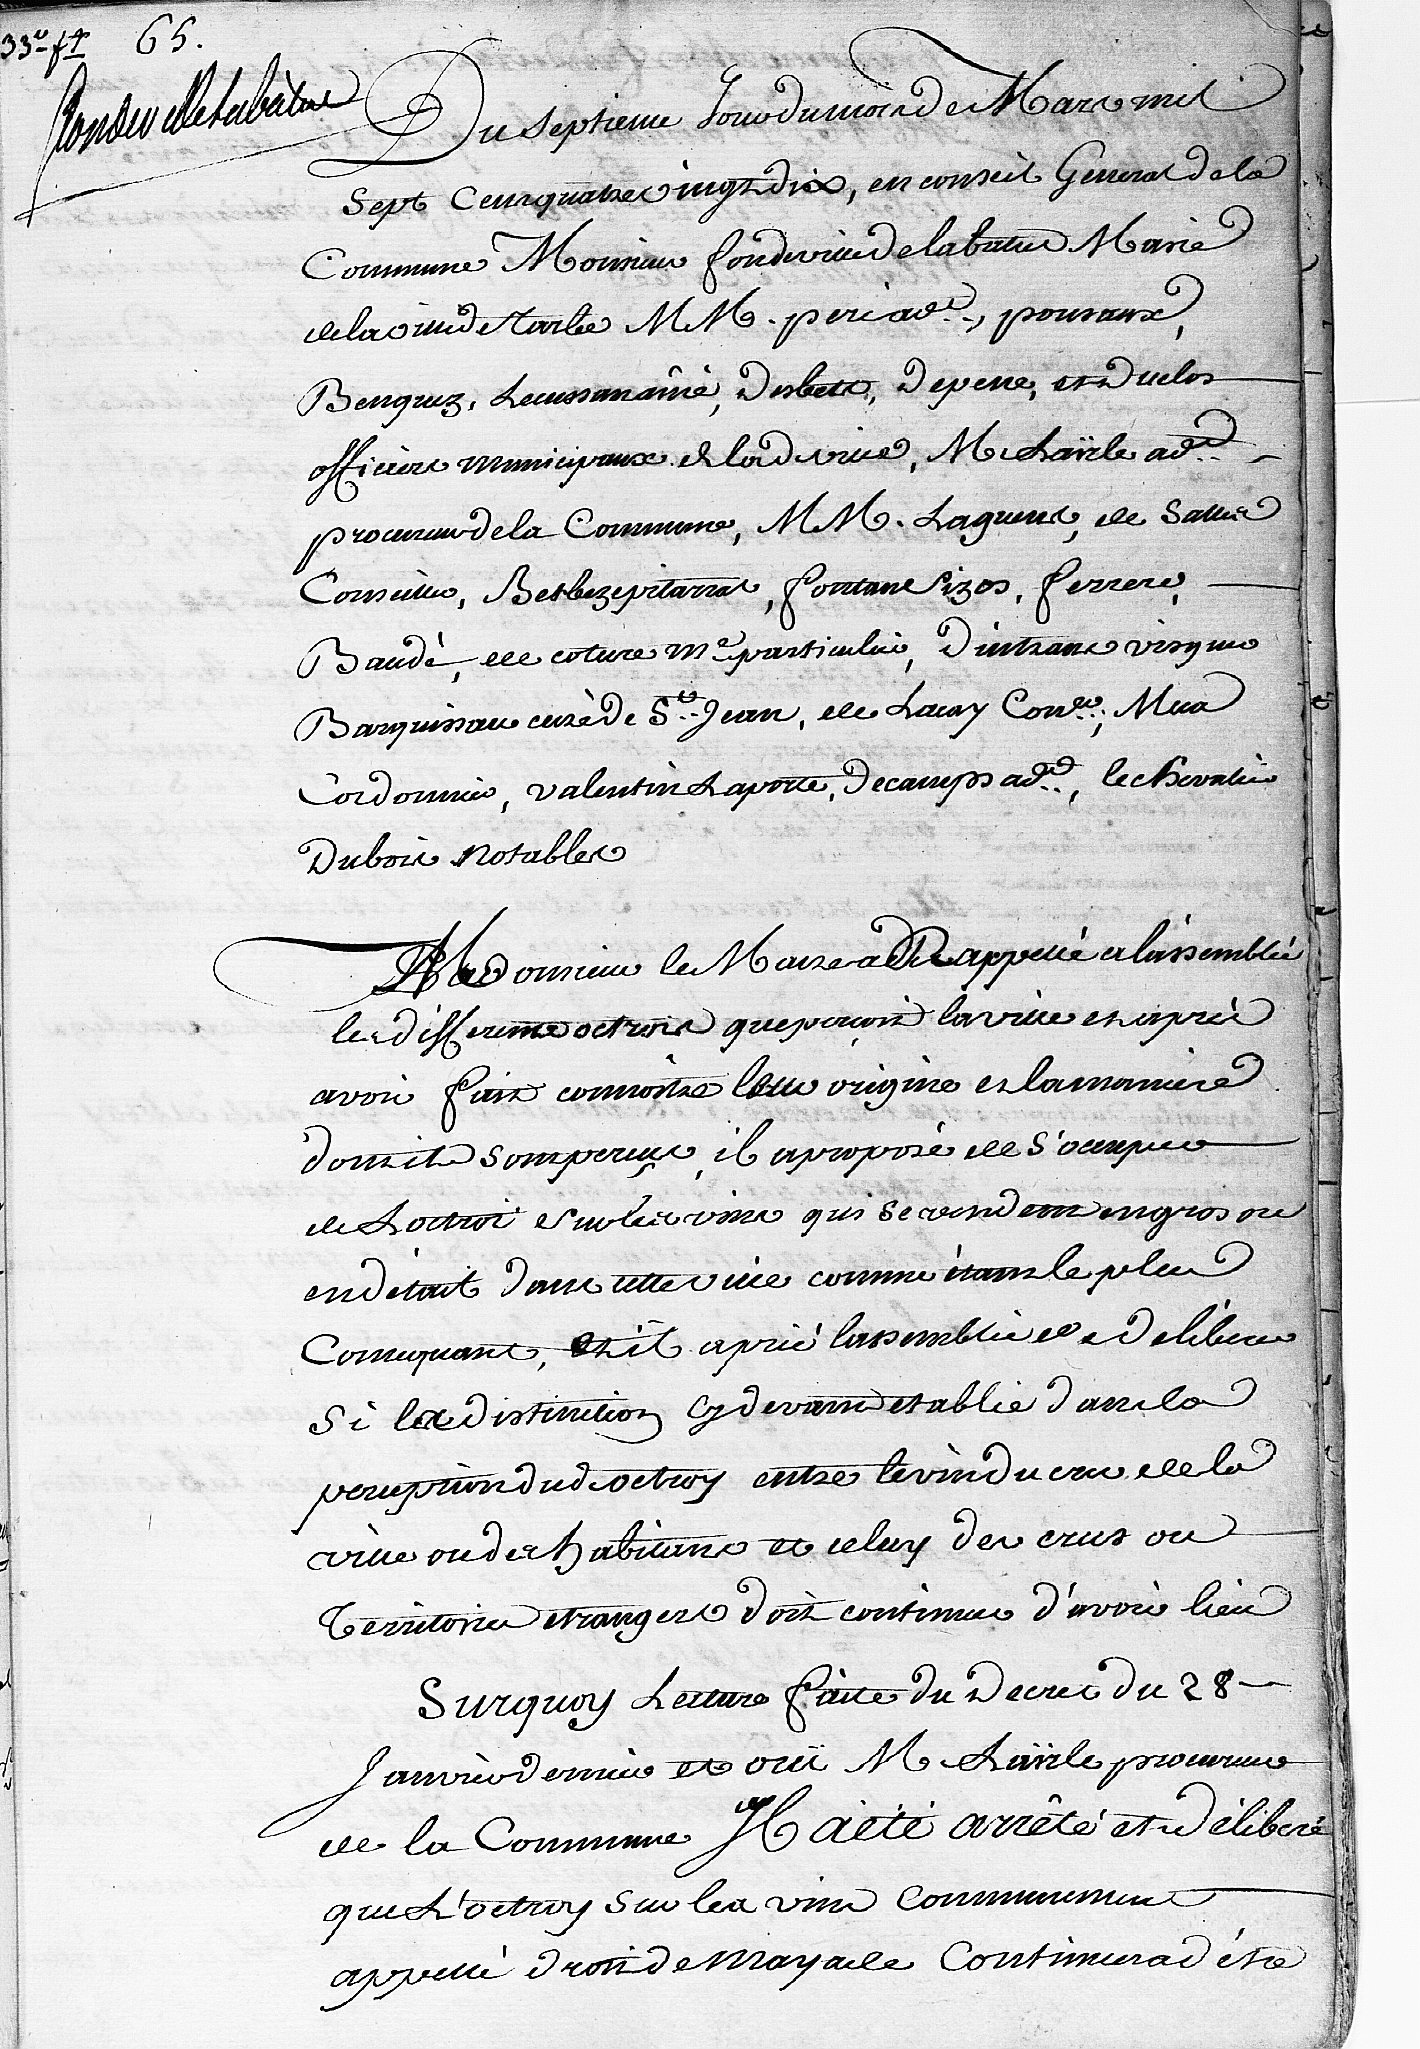 33e ft 65.
fondeville de labatut
Du septieme Jour du mois de Mars mil
sept Cens quatre vingt dix, en conseil General de la
Commune Monsieur fondeville de labatut Maire
de la ville de Tarbe MM. peri adt., pouraux,
Bengruz, Lecussan ainé, Desbets, Depene, et Duclos
officiers municipaux de lad. ville, M. Laïrle adt.
procureur de la Commune, MM. Laguens, de Salles
Conseiller, Betbeze pitarrat, fontan Sizos, ferrere,
Baudé, de coture me particulier, Dintrans visque
Barquissau curé de St. Jean, de Lacay Coner., Mua
Cordonnier, valentin Laporte, Decamps adt., le chevalier
Dubois notables
Monsieur le Maire a Rappellé a l'assemblée
les differents octrois que perçoit la ville et apres
avoir fait connoitre leur origine et la maniere
dont ils sont perçus, il a proposé de s'occuper
de L'octroi sur les vins qui se vendent en gros ou
en detail dans cette ville comme étant le plus
Consequant, et il a prié l'assemblée de deliberer
si la distinction cy devant etablie dans la
perception dud. octroy entre le vin du cru de la
ville ou des habitans et celuy des crus ou
Territoires etrangers doit continuer d'avoir lieu
Surquoy Lecture faite du Decret du 28
Janvier dernier et oui M. Laïrle procureur
de la Commune Il a été arrêté et délibéré
que L'octroy sur les vins communement
appellé droit de mayade Continuera d'être